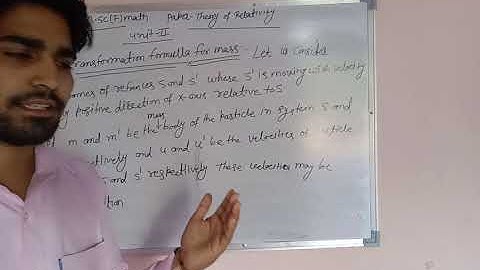 M.SC(F) math Paper- Theory of Relativity
Unit-II
Transformation formula for mass - Let us consider
frames of S and S' where S' is moving with velocity
positive direction of x-axis relative to S
mass
m and m' be the body of the particle in system S and
and u and u' be the velocities of
S and S' respectively These velocities may be